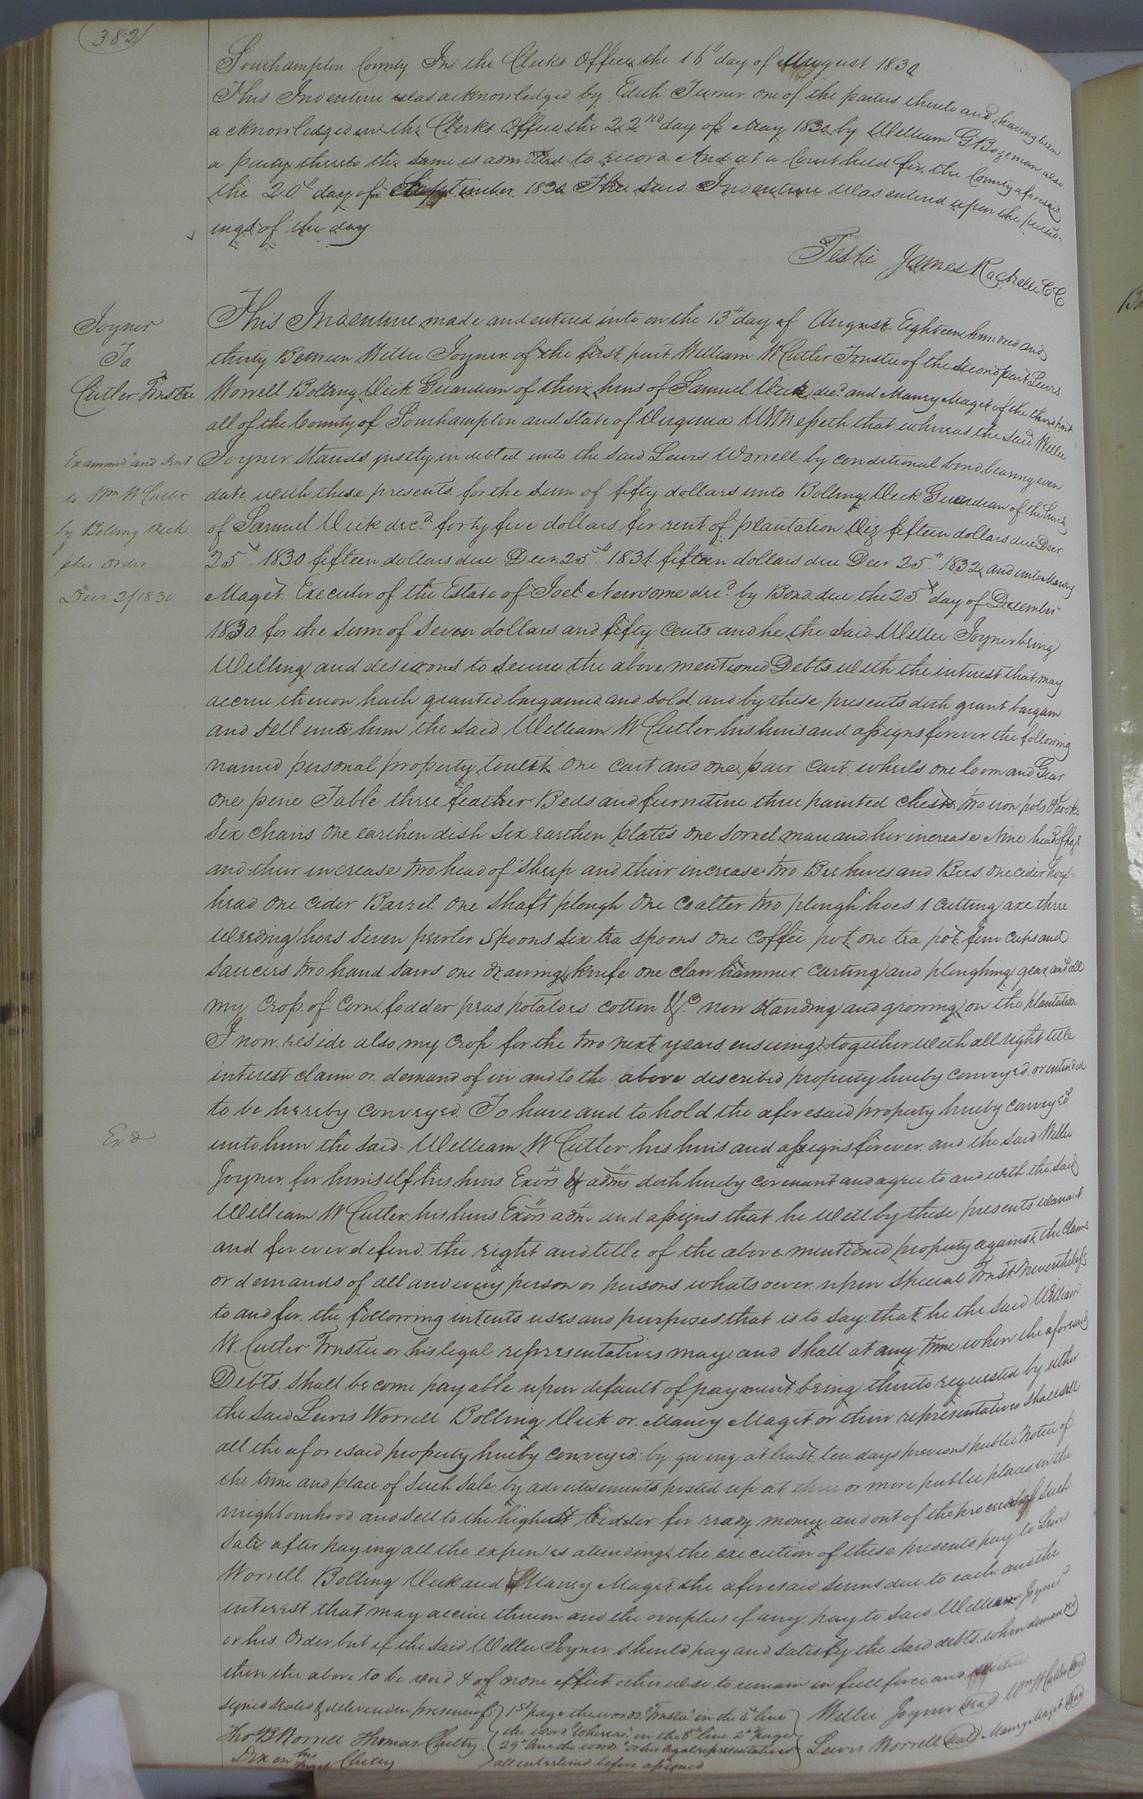 382
Southampton County In the Clerks Office the 16th day of August 1830
This Indenture was acknowledged by Edith Turner one of the parties thereto and having been
acknowledged in the Clerks Office the 22nd day of May 1830 by William G Bozeman also
a party thereto the same is admitted to record And at a Court held for the County aforesaid
the 20th day of September 1830 The said Indenture was entered upon the proceed-
ings of the day
Teste James Rochelle CC
Joyner
To
Cutler Trustee
Examined and sent
to Wm W Cutler
by Bolling Vick
pher order
Decr 2/1830
This Indenture made and entered into on the 13th day of August Eighteen hundred and
thirty Between Willie Joyner of the first part William W Cutler Trustee of the Second part Lewis
Worrell Bolling Vick Guardian of their heirs of Samuel Vick decd and Manry Maget of the third part
all of the County of Southampton and State of Virginia Witnesseth that whereas the said Willie
Joyner stands justly indebted unto the said Lewis Worrell by conditional bond bearing even
date with these presents for the sum of fifty dollars unto Bolling Vick Guardian of the heirs
of Samuel Vick decd forty five dollars for rent of plantation Viz fifteen dollars due Decr
25th 1830 fifteen dollars due Decr 25th 1831 fifteen dollars due Decr 25th 1832 and unto Manry
Maget Executor of the Estate of Joel Newsome decd by Bond due the 25th day of December
1830 for the sum of Seven dollars and fifty Cents and he the said Willie Joyner being
Willing and desirous to secure the above mentioned Debts with the interest that may
accrue thereon hath granted bargained and sold and by these presents doth grant bargain
and sell unto him the said William W Cutler his heirs and assigns forever the following
named personal property towit One cart and one pair cart wheels one loom and Gear
one pine Table three feather Beds and furniture three painted chests two iron pots & hooks
Six chairs one earthen dish six earthen plates one sorrel mare and her increase Nine head of hogs
and their increase two head of Sheep and their increase two Bee hives and Bees one cider hogs-
head one cider Barrel one Shaft plough One coalter two plough hoes 1 cutting axe three
weeding hoes Seven pewter Spoons Six tea spoons one coffee pot one tea pot few cups and
saucers two hand saws one drawing knife one claw hammer carting and ploughing gear and all
my crop of Corn fodder peas potatoes cotton &c now standing and growing on the plantation
I now reside also my crop for the two next years ensuing together with all right title
interest claim or demand of in and to the above described property hereby conveyed or intended
to be hereby conveyed To have and to hold the aforesaid property hereby conveyed
Exd
unto him the said William W Cutler his heirs and assigns forever and the said Willie
Joyner for himself his heirs Exors & adms doth hereby covenant and agree to and with the said
William W Cutler his heirs Exors adms and assigns that he will by these presents warrant
and for ever defend the right and title of the above mentioned property against the claims
or demands of all and every person or persons whatsoever upon special Trust nevertheless
to and for the following intents uses and purposes that is to say that he the said William
W. Cutler Trustee or his legal representatives may and shall at any time when the aforesaid
Debts shall become payable upon default of payment being thereto requested by either
the said Lewis Worrell Bolling Vick or Manry Maget or their representatives shall sell
all the aforesaid property hereby conveyed by giving at least ten days previous public Notice of
the time and place of such sale by advertisements posted up at three or more public places in the
neighbourhood and sell to the highest bidder for ready money and out of the proceeds of such
Sale after paying all the expenses attending the execution of these presents pay to Lewis
Worrell Bolling Vick and Manry Maget the aforesaid sums due to each and the
interest that may accrue thereon and the overplus if any pay to said Willie Joyner
or his Order but if the said Willie Joyner should pay and satisfy the said debts when demanded
then the above to be void & of none effect otherwise to remain in full force and
Signed sealed & delivered in presence of } 1st page the words "Trustee" in the 2d line } Willie Joyner Seal Wm W Cutler Seal
Thos B Worrell Thomas Chitty { the word "Whereas" in the 8th line 2d page } Lewis Worrell Seal Manry Maget Seal
29th line the words "or his legal representatives"
Dixon his mark Chitty } all interlined before assigned